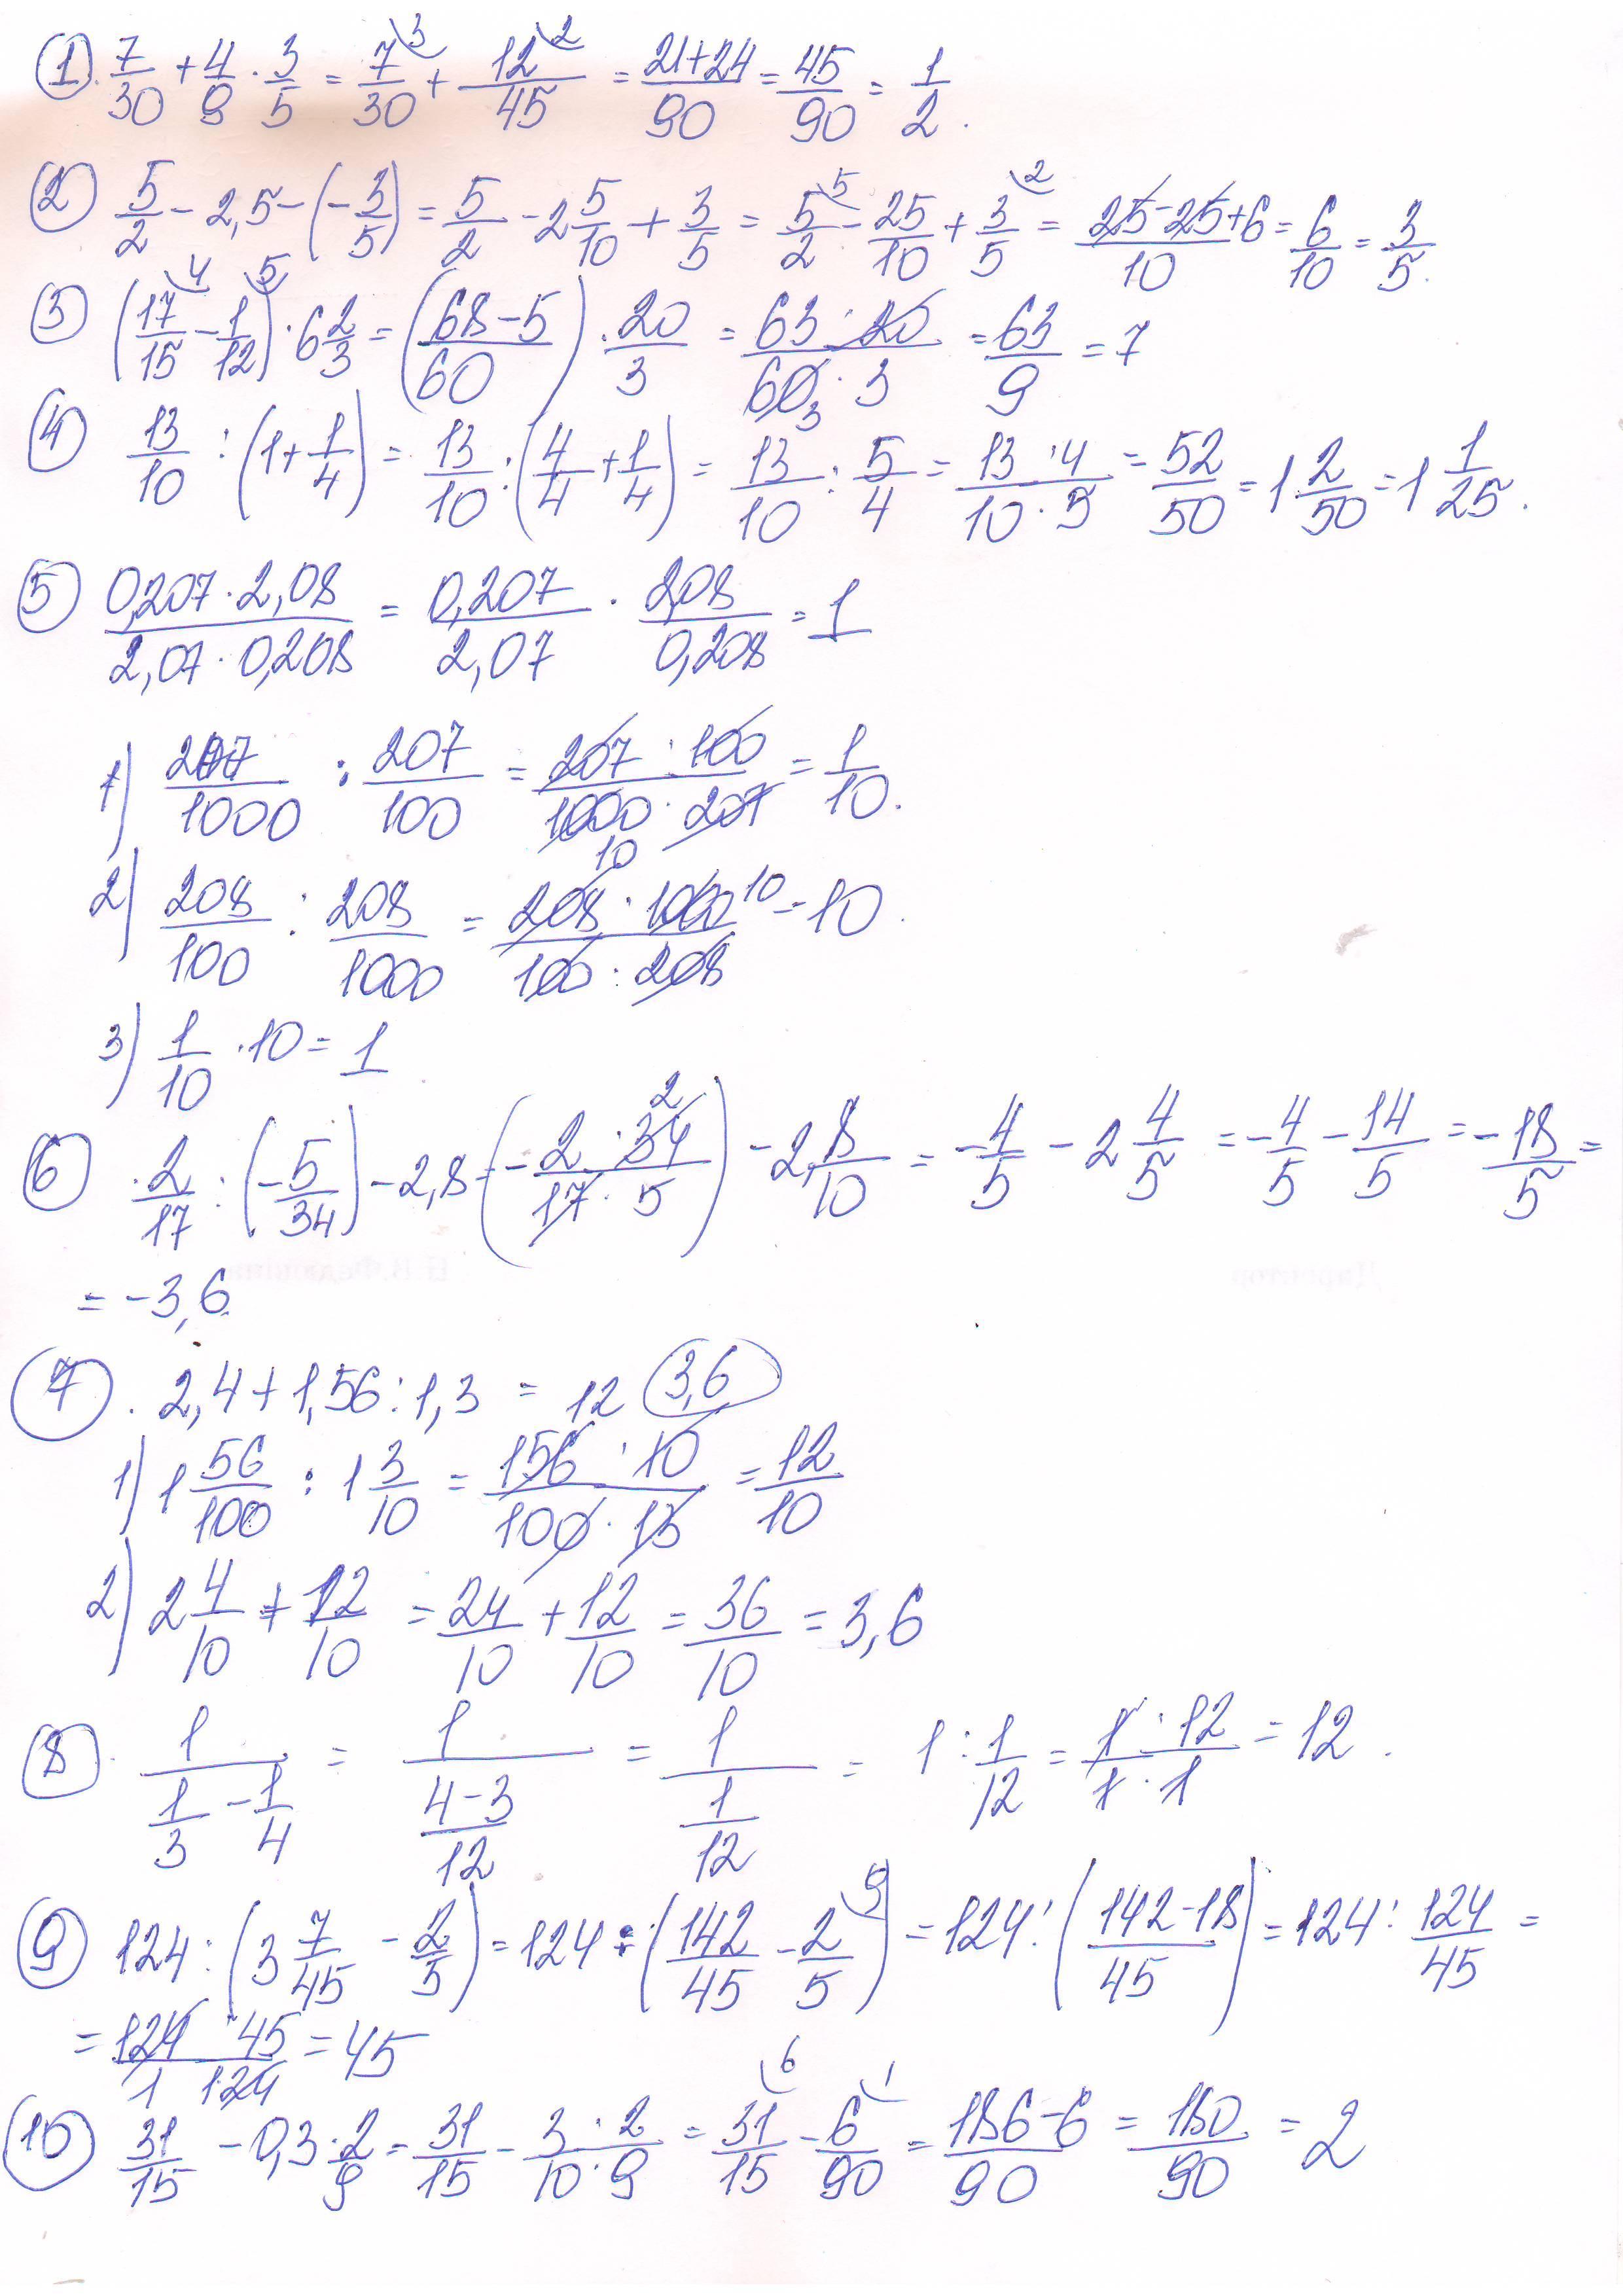 ① 7/30 + 4/9 · 3/5 = 7/30 (3 + 12/45 (2 = 21+24/90 = 45/90 = 1/2.
② 5/2 - 2,5 - (-3/5) = 5/2 - 2 5/10 + 3/5 = 5/2 (5 - 25/10 + 3/5 (2 = 25-25+6/10 = 6/10 = 3/5.
③ (17/15 (4 - 1/12 (5) · 6 2/3 = (68-5/60) · 20/3 = 63·20/60·3 3 = 63/9 = 7
④ 13/10 : (1+1/4) = 13/10 : (4/4 + 1/4) = 13/10 : 5/4 = 13·4/10·5 = 52/50 = 1 2/50 = 1 1/25.
⑤ 0,207·2,08/2,07·0,208 = 0,207/2,07 · 2,08/0,208 = 1
1) 207/1000 : 207/100 = 207·100/1000·207 10 = 1/10.
2) 208/100 : 208/1000 = 208·1000/100·208 10 = 10.
3) 1/10 · 10 = 1
⑥ 2/17 : (-5/34) - 2,8 = (-2·34/17·5 2) - 2,8/10 = -4/5 - 2 4/5 = -4/5 - 14/5 = -18/5 =
= -3,6.
⑦. 2,4 + 1,56 : 1,3 = 12 3,6
1) 1 56/100 : 1 3/10 = 156·10/100·13 = 12/10
2) 2 4/10 + 12/10 = 24/10 + 12/10 = 36/10 = 3,6
⑧. 1/(1/3 - 1/4) = 1/(4-3/12) = 1/(1/12) = 1 : 1/12 = 1·12/1·1 = 12.
⑨ 124 : (3 7/45 - 2/5) = 124 : (142/45 - 2/5 (9) = 124 : (142-18/45) = 124 : 124/45 =
= 124·45/1 124 = 45
⑩ 31/15 - 0,3 · 2/9 = 31/15 - 3·2/10·9 = 31/15 (6 - 6/90 (1 = 186-6/90 = 180/90 = 2